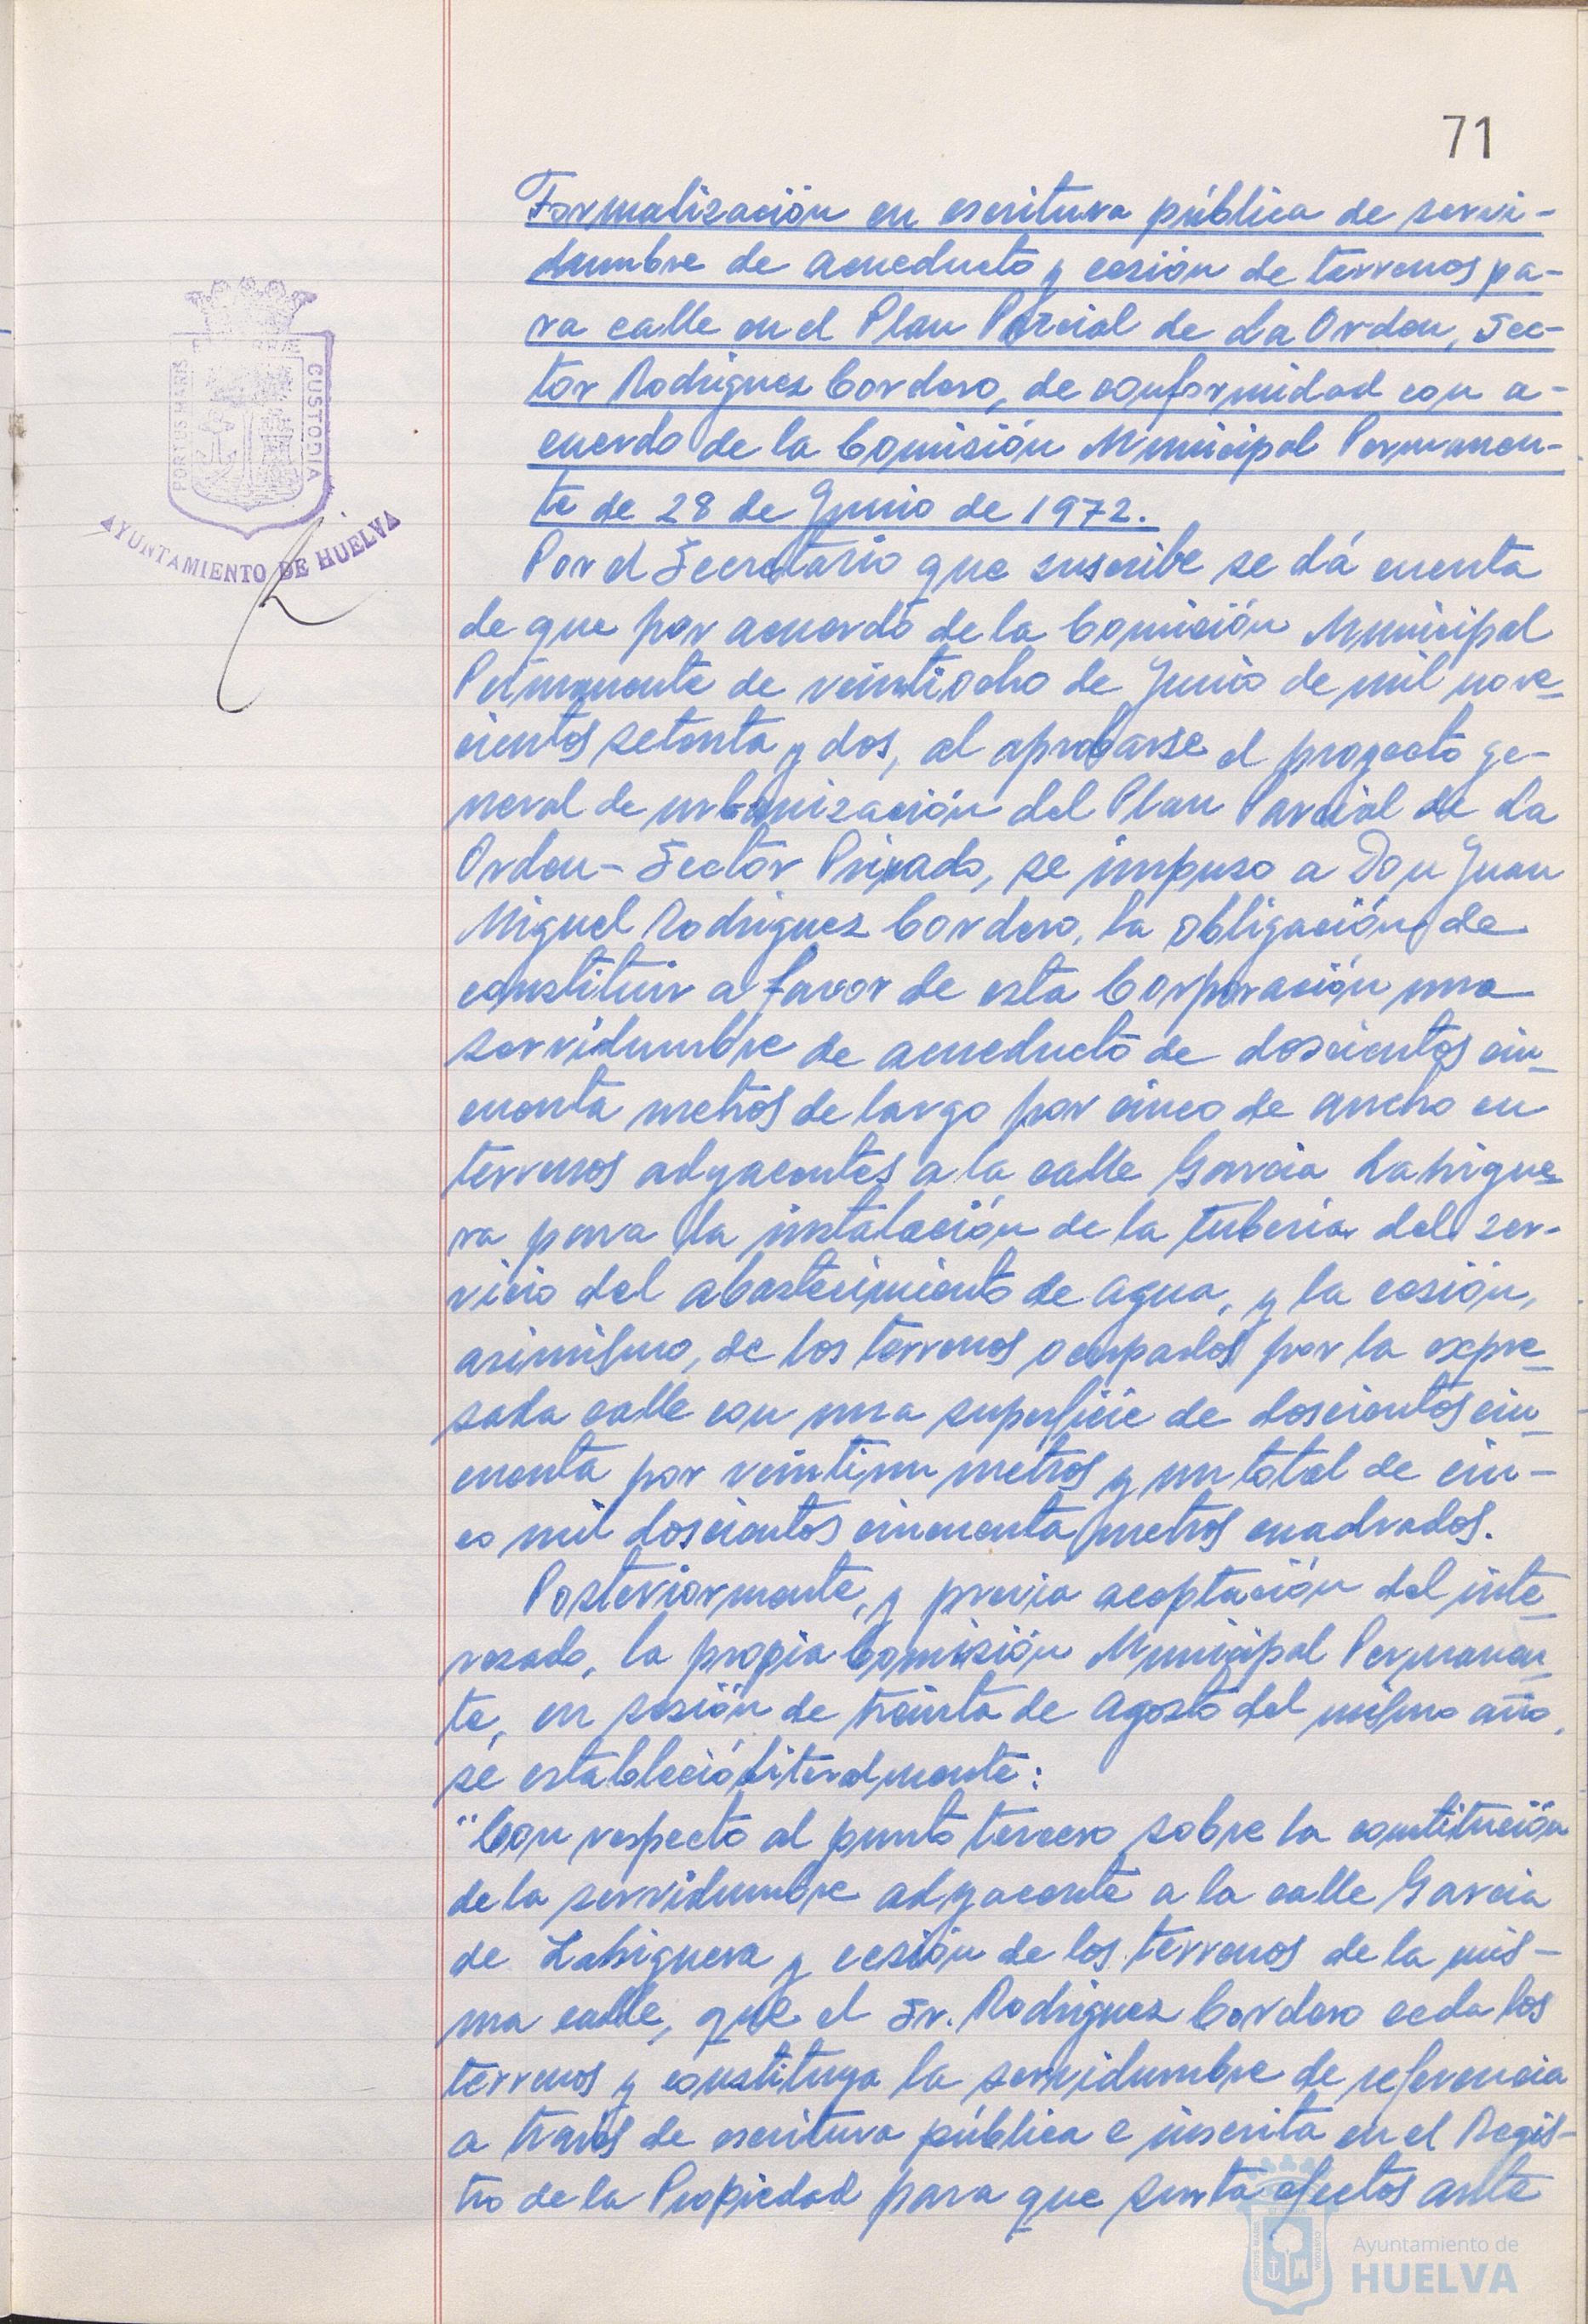 71
Formalización en escritura pública de servi-
dumbre de acueducto y cesión de terrenos pa-
ra calle en el Plan Parcial de La Orden, Sec-
tor Rodriguez Cordero, de conformidad con a-
cuerdo de la Comisión Municipal Permanen-
te de 28 de Junio de 1972.
Por el Secretario que suscribe se dá cuenta
de que por acuerdo de la Comisión Municipal
Permanente de veintiocho de Junio de mil nove-
cientos setenta y dos, al aprobarse el proyecto ge-
neral de urbanización del Plan Parcial de La
Orden- Sector Privado, se impuso a Don Juan
Miguel Rodriguez Cordero, la obligación de
constituir a favor de esta Corporación una
servidumbre de acueducto de doscientos cin-
cuenta metros de largo por cinco de ancho en
terrenos adyacentes a la calle Garcia Lahigue-
ra para la instalación de la tuberia del ser-
vicio del abastecimiento de agua, y la cesión,
asimismo, de los terrenos ocupados por la expre-
sada calle con una superficie de doscientos cin-
cuenta por veintiun metros y un total de cin-
co mil doscientos cincuenta metros cuadrados.
Posteriormente, y previa aceptación del inte-
resado, la propia Comisión Municipal Permanen-
te, en sesión de treinta de Agosto del mismo año,
se estableció literalmente:
"Con respecto al punto tercero sobre la constitución
de la servidumbre adyacente a la calle Garcia
de Lahiguera y cesión de los terrenos de la mis-
ma calle, que el Sr. Rodriguez Cordero ceda los
terrenos y constituya la servidumbre de referencia
a través de escritura pública e inscrita en el Regis-
tro de la Propiedad para que surta efectos ante
PORTUS MARIS
CUSTODIA
AYUNTAMIENTO DE HUELVA
Ayuntamiento de
HUELVA